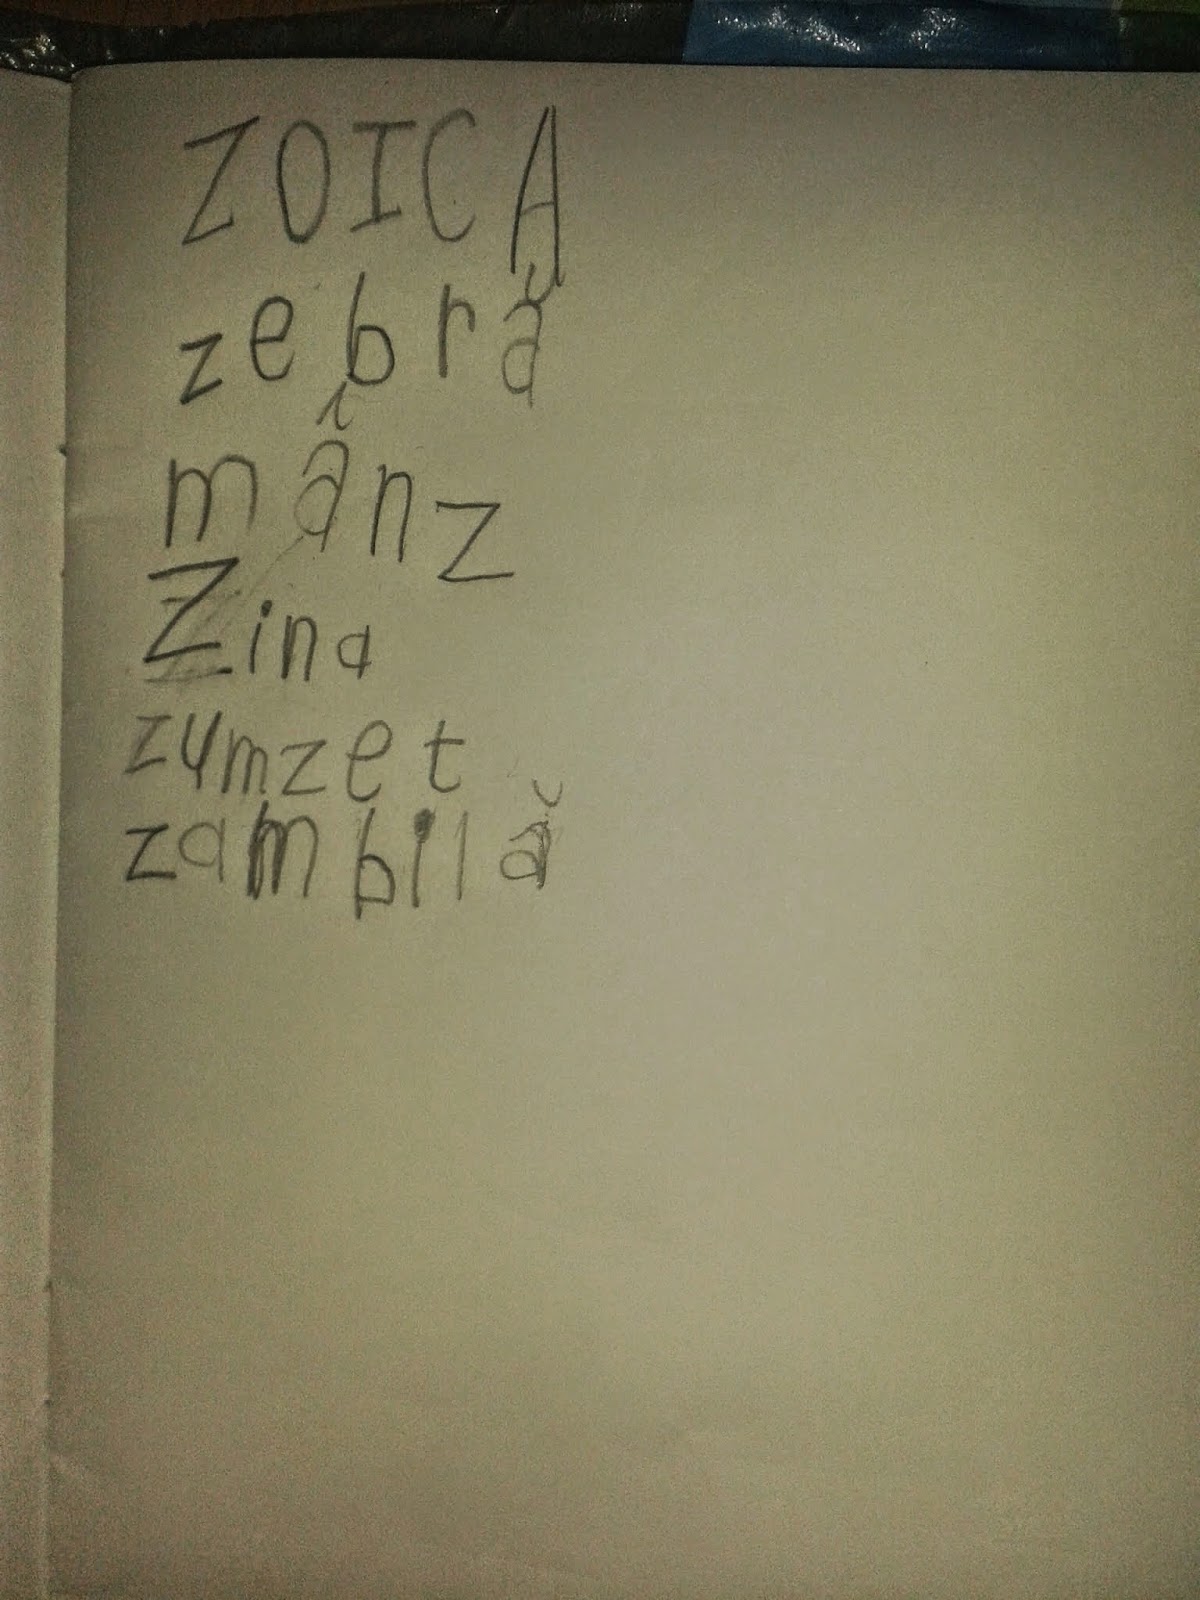 ZOICA
zebră
mânz
Zina
zumzet
zambilă